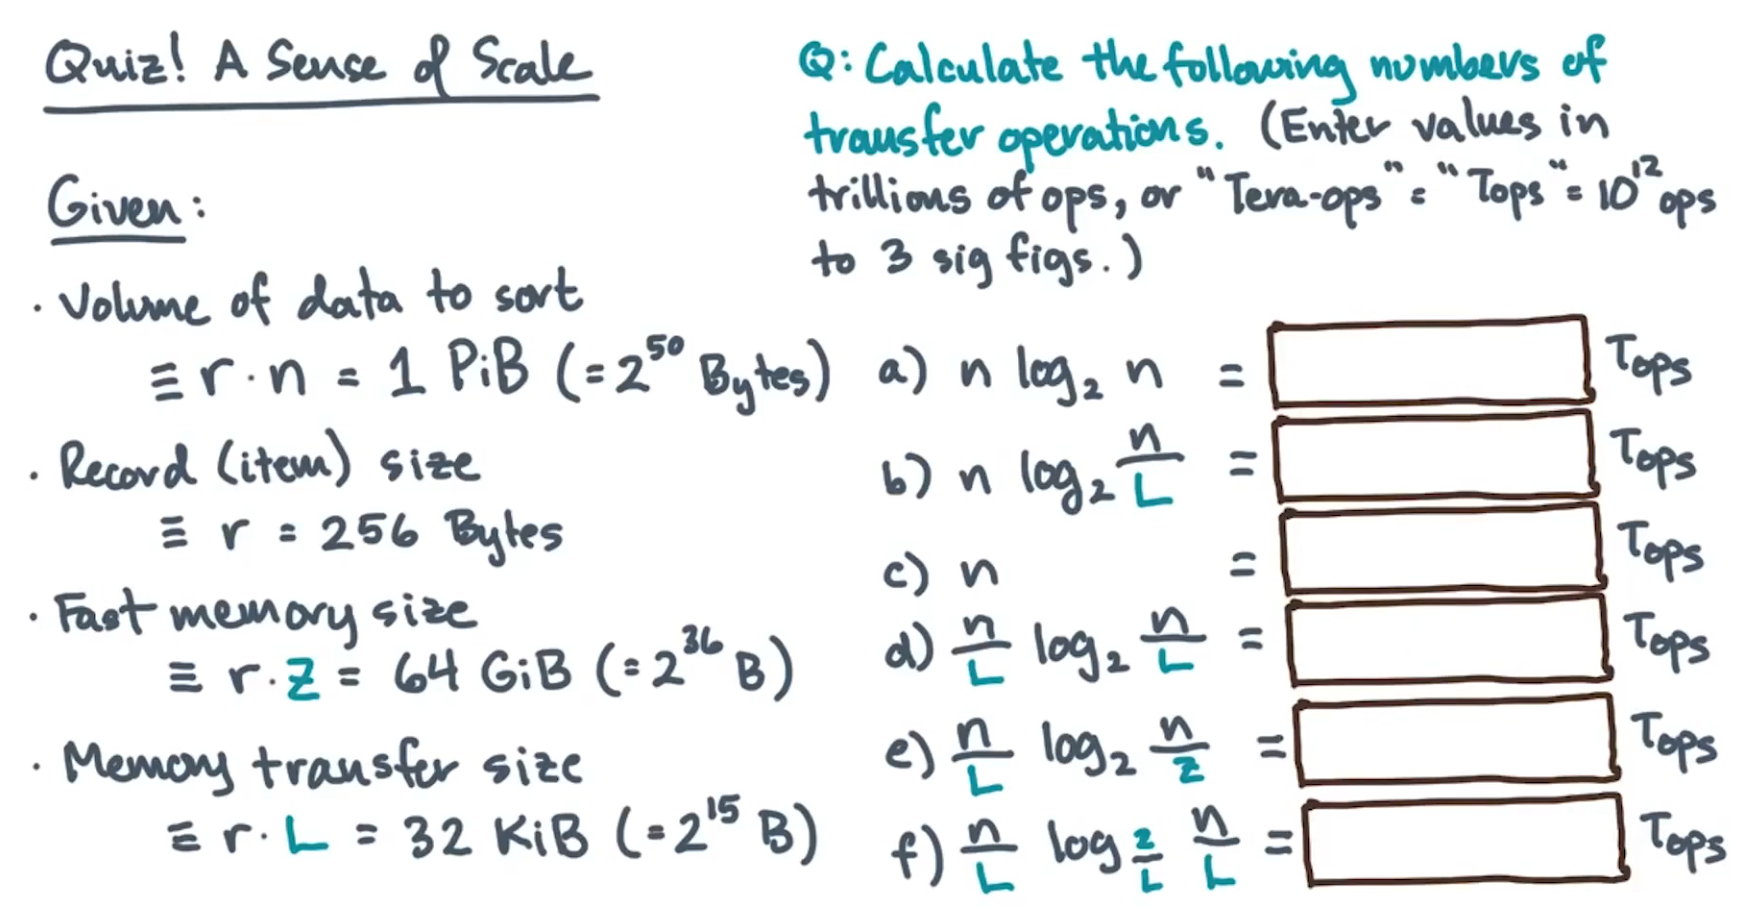 Quiz! A Sense of Scale
Given:
· Volume of data to sort
≡ r · n = 1 PiB (= 2^50 Bytes)
· Record (item) size
≡ r = 256 Bytes
· Fast memory size
≡ r · Z = 64 GiB (= 2^36 B)
· Memory transfer size
≡ r · L = 32 KiB (= 2^15 B)
Q: Calculate the following numbers of
transfer operations. (Enter values in
trillions of ops, or "Tera-ops" = "Tops" = 10^12 ops
to 3 sig figs.)
a) n log_2 n = Tops
b) n log_2 n/L = Tops
c) n = Tops
d) n/L log_2 n/L = Tops
e) n/L log_2 n/Z = Tops
f) n/L log_{Z/L} n/L = Tops